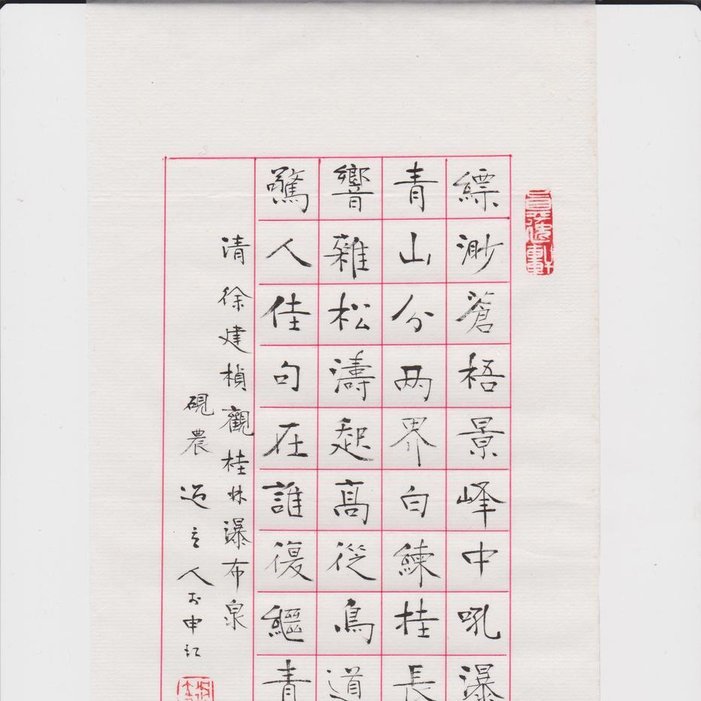 縹渺蒼梧景峰中吼瀑
青山分兩界白練挂長
響雜松濤起高從鳥道
驚人佳句在誰復繼青
清徐建楨觀桂林瀑布泉
硯農 迈立人於申江